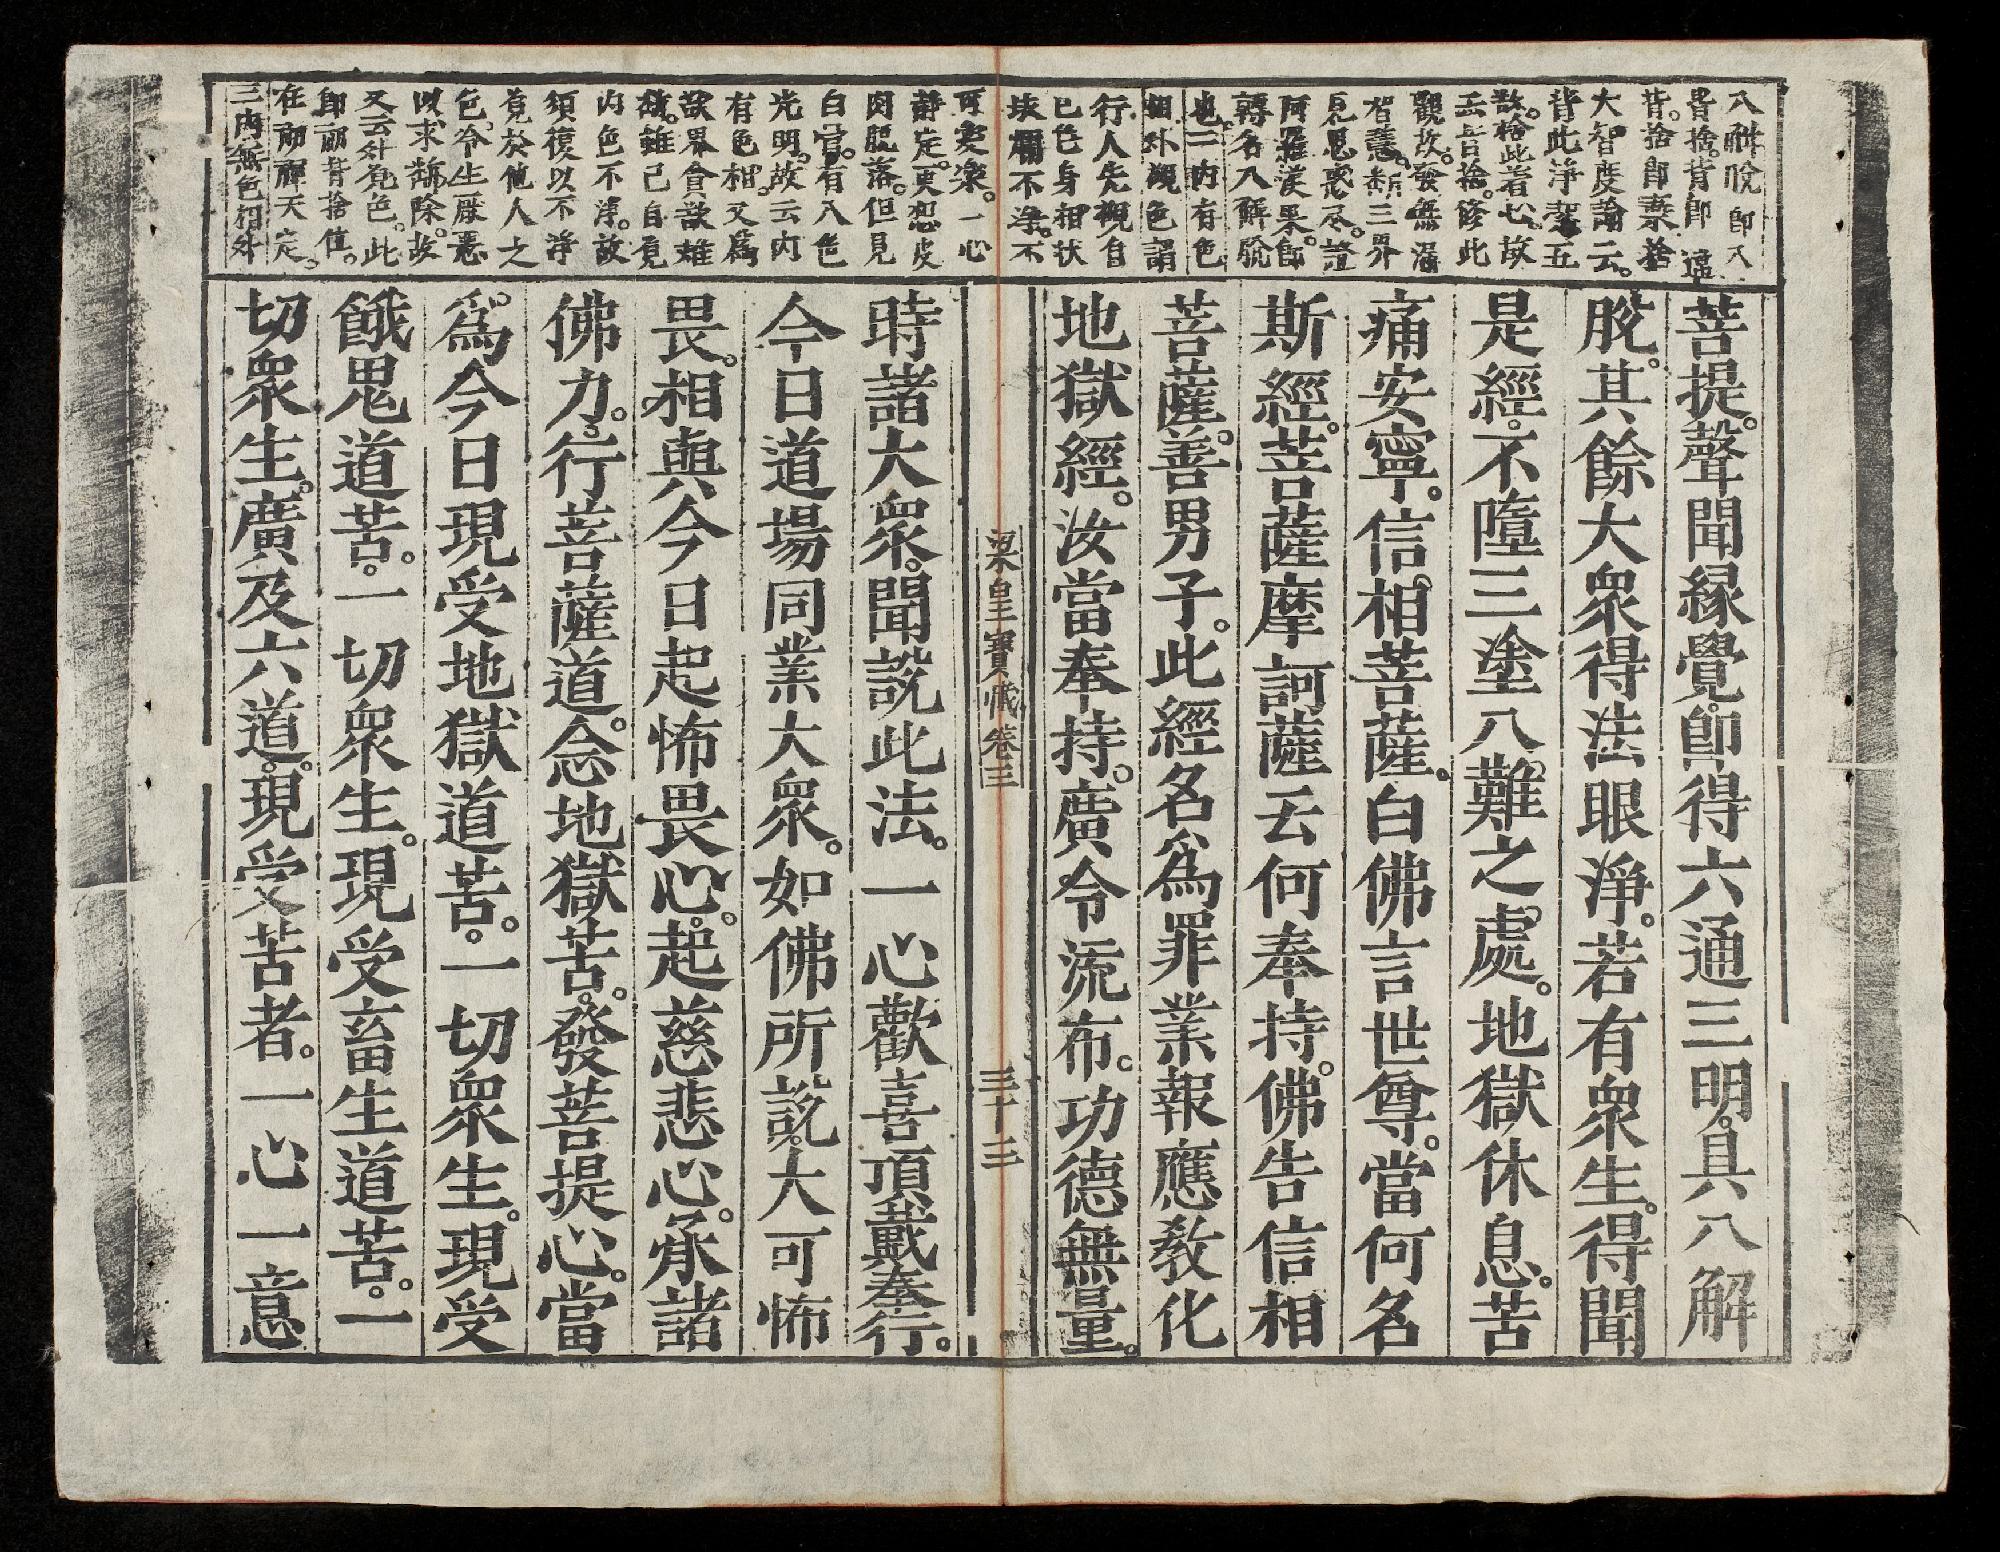 八解脫 即八
背捨。背即 違
背。捨即棄捨
大智度論云。
背此淨潔五
欲。捨此著心。故
云背捨。修此
觀故。發無漏
智慧。斷三界
見思惑盡。證
阿羅漢果。即
轉名八解脫
也。一內有色
相外觀色謂
行人先觀自
己色身相狀
壞爛不淨。不
可愛樂。一心
靜定。更想皮
肉脫落。但見
白骨。有八色
光明。故云內
有色相。又為
欲界會欲難
故。雖已自覓
內色不淨。故
須復以不淨
覓於他人之
色。令生厭惡
以求蠲除。故
又云外覓色。此
即初背捨位。
在初禪天定。
三內無色相外
菩提。聲聞緣覺。即得六通三明。具八解
脫。其餘大眾得法眼淨。若有眾生。得聞
是經。不墮三塗八難之處。地獄休息。苦
痛安寧。信相菩薩。白佛言世尊。當何名
斯經。菩薩摩訶薩云何奉持。佛告信相
菩薩。善男子。此經名為罪業報應教化
地獄經。汝當奉持。廣令流布。功德無量。
梁皇寶懺卷三
三十三
時諸大眾。聞說此法。一心歡喜頂戴奉行。
今日道場同業大眾。如佛所說。大可怖
畏。相與今日起怖畏心。起慈悲心。承諸
佛力。行菩薩道。念地獄苦。發菩提心。當
為今日現受地獄道苦。一切眾生。現受
餓鬼道苦。一切眾生。現受畜生道苦。一
切眾生。廣及六道。現受苦者。一心一意